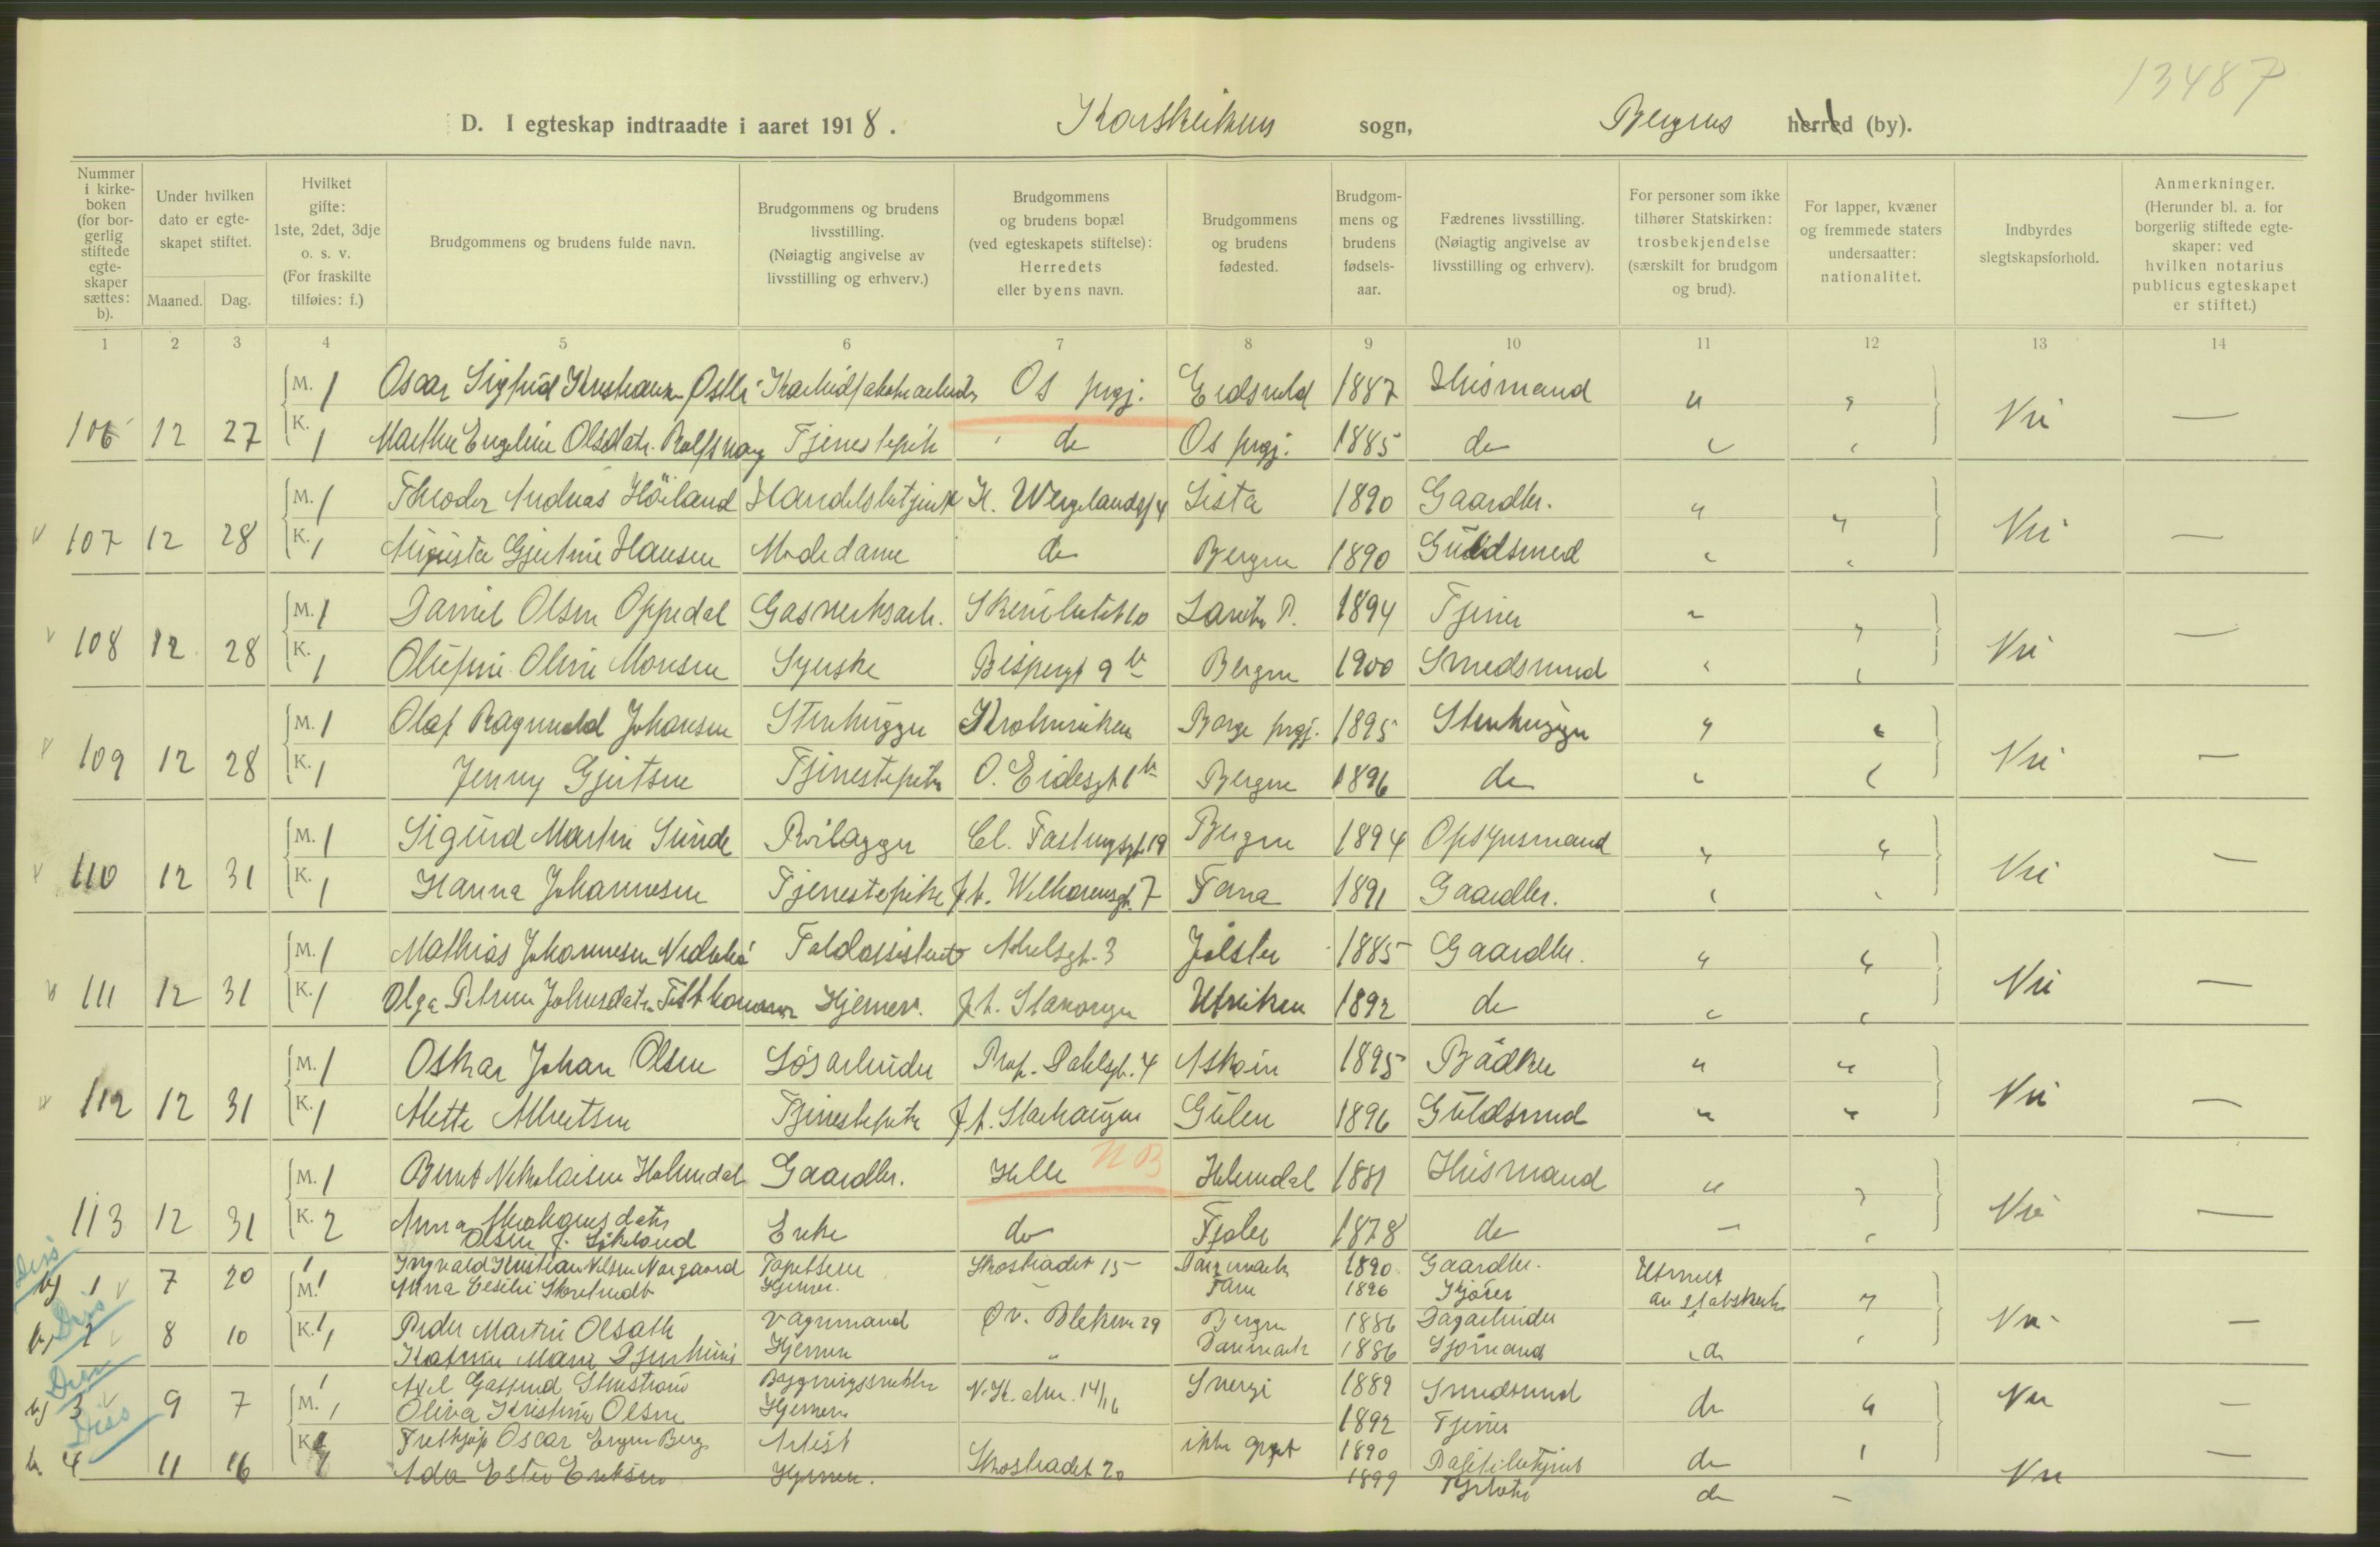 13487
D. I egteskap indtraadte i aaret 1918. Korskirken sogn, Bergens herred (by).
Nummer i kirkeboken (for borgerlig stiftede egteskaper sættes: b).
Under hvilken dato er egteskapet stiftet.
Maaned. Dag.
Hvilket gifte: 1ste, 2det, 3dje o. s. v. (For fraskilte tilføies: f.)
Brudgommens og brudens fulde navn.
Brudgommens og brudens livsstilling. (Nøiagtig angivelse av livsstilling og erhverv.)
Brudgommens og brudens bopæl (ved egteskapets stiftelse): Herredets eller byens navn.
Brudgommens og brudens fødested.
Brudgommens og brudens fødselsaar.
Fædrenes livsstilling. (Nøiagtig angivelse av livsstilling og erhverv).
For personer som ikke tilhører Statskirken: trosbekjendelse (særskilt for brudgom og brud).
For lapper, kvæner og fremmede staters undersaatter: nationalitet.
Indbyrdes slegtskapsforhold.
Anmerkninger. (Herunder bl. a. for borgerlig stiftede egteskaper: ved hvilken notarius publicus egteskapet er stiftet.)
1 2 3 4 5 6 7 8 9 10 11 12 13 14
M. 1 Oscar Sigfrid Kristiansen Østli Os prgj. Eidsvold 1887 Husmand " "
106 12 27 Nei —
K. 1 Marthe Engeline Olsdatr. Rolfsvaag Tjenestepike do Os prgj. 1885 do " "
M. 1 Theodor Andreas Höiland Handelsbetjent H. Wergelandsgt 4 Lista 1890 Gaardbr. " "
107 12 28 Nei —
K. 1 Augusta Gjertine Hansen Modedame do Bergen 1890 Guldsmed " "
M. 1 Daniel Olsen Oppedal Gasverksarb. 1894 Tjener " "
108 12 28 Nei —
K. 1 Olufine Oline Monsen Syerske Bispengt 9 b Bergen 1900 Smedsvend " "
M. 1 Olaf Ragnvald Johansen Stenhugger Kronviken Borge prgj. 1895 Stenhugger " "
109 12 28 Nei —
K. 1 Jenny Gjertsen Tjenestepike O. Eidesgt 1 b Bergen 1896 do " "
M. 1 Sigurd Martin Sunde Rørlægger Cl. Fastingsgt. 19 Bergen 1894 Opsynsmand " "
110 12 31 Nei —
K. 1 Hanna Johannesen Tjenestepike Fana 1891 Gaardbr. " "
M. 1 Mathias Johannesen Nedrebö Toldassistent Absalsgt. 3 Jølster 1885 Gaardbr. " "
111 12 31 Nei —
K. 1 Olga Petrine Johnsdatr. Hjemmev. 1892 do " "
M. 1 Oskar Johan Olsen Løsarbeider Prof. Dahlsgt. 4 Askøen 1895 Bödker " "
112 12 31 Nei —
K. 1 Mette Albertsen Tjenestepike Gulen 1896 Guldsmed " "
M. 1 Bernt Nikolaisen Holmedal Gaardbr. Helle NB Holmedal 1881 Husmand " "
113 12 31 Nei —
K. 2 Anna datr Olsen f. Enke do Fjaler 1878 do — "
Diss b) 1 7 20 M. 1 Ingvald Kristian Nilsen Norgaard Tapetserer Skostrædet 15 Danmark 1890 Gaardbr. Utmeldt "
Anna Cecilie Hjemmev. — 1896 Skjører av statskirken
Diss b) 2 8 10 K. 1 Peder Martin Olsath Vognmand Øv. Blekevn 29 Bergen 1886 Dagarbeider " Nei —
1 Marie Hjemmev. " Danmark 1886 Sjömand do
Diss b) 3 9 7 M. 1 Axel Bygningssnekker 14/16 Sverige 1889 Smedsvend do " Nei —
1 Oliva Kristine Olsen Hjemmev. 1892 Tjener
Diss b. 4 11 16 K. 1 Frithjof Oscar Berg Artist Skostrædet 20 ikke opgit 1890 do Nei —
1 Ada Ester Eriksen Hjemmev. 1899 do —